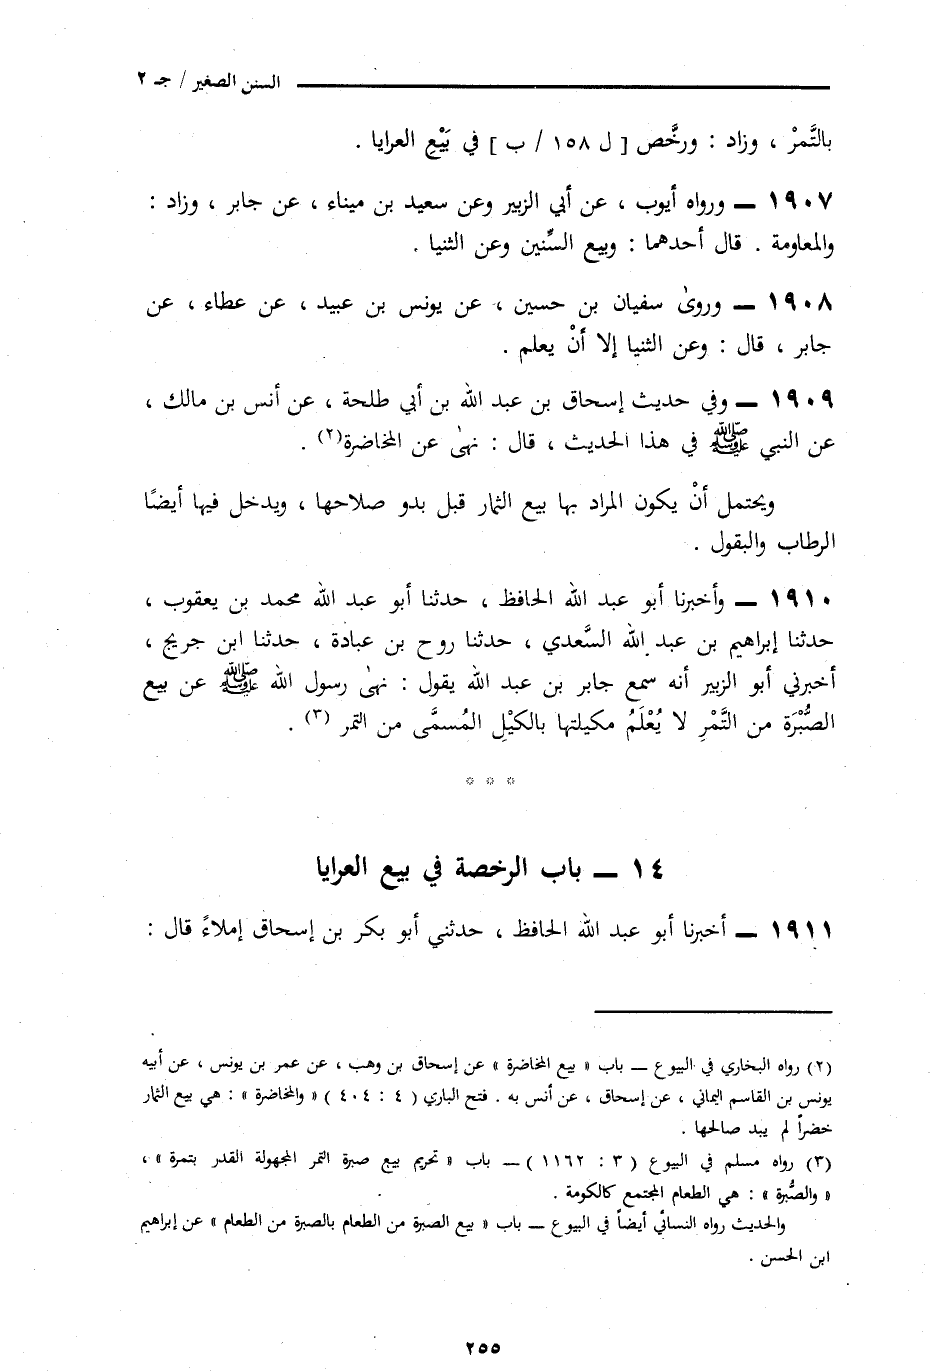 السنن الصغير / جـ ٢
بالتَّمرْ ، وزاد : ورخَّص [ ل ١٥٨ / ب ] في بَيْعِ العرايا .
١٩٠٧ ــ ورواه أيوب ، عن أبي الزبير وعن سعيد بن ميناء ، عن جابر ، وزاد :
والمعاومة . قال أحدهما : وبيع السِّنين وعن الثنيا .
١٩٠٨ ــ وروىٰ سفيان بن حسين ، عن يونس بن عبيد ، عن عطاء ، عن
جابر ، قال : وعن الثنيا إلا أنْ يعلم .
١٩٠٩ ــ وفي حديث إسحاق بن عبد الله بن أبي طلحة ، عن أنس بن مالك ،
عن النبي ﷺ في هذا الحديث ، قال : نهىٰ عن المخاضرة(٢) .
ويحتمل أنْ يكون المراد بها بيع الثمار قبل بدو صلاحها ، ويدخل فيها أيضًا
الرطاب والبقول .
١٩١٠ ــ وأخبرنا أبو عبد الله الحافظ ، حدثنا أبو عبد الله محمد بن يعقوب ،
حدثنا إبراهيم بن عبد الله السَّعدي ، حدثنا روح بن عبادة ، حدثنا ابن جريج ،
أخبرني أبو الزبير أنه سمع جابر بن عبد الله يقول : نهىٰ رسول الله ﷺ عن بيع
الصُّبْرَة من التَّمْرِ لا يُعْلَمُ مكيلتها بالكيْلِ المُسمَّى من التمر (٣) .
* * *
١٤ ــ باب الرخصة في بيع العرايا
١٩١١ ــ أخبرنا أبو عبد الله الحافظ ، حدثني أبو بكر بن إسحاق إملاءً قال :
(٢) رواه البخاري في البيوع ــ باب « بيع المخاضرة » عن إسحاق بن وهب ، عن عمر بن يونس ، عن أبيه
يونس بن القاسم اليماني ، عن إسحاق ، عن أنس به . فتح الباري ( ٤ : ٤٠٤ ) « والمخاضرة » : هي بيع الثمار
خضراً لم يبد صالحها .
(٣) رواه مسلم في البيوع ( ٣ : ١١٦٢ ) ــ باب « تحريم بيع صبرة التمر المجهولة القدر بتمرة » ،
« والصُّبرة » : هي الطعام المجتمع كالكومة .
والحديث رواه النسائي أيضاً في البيوع ــ باب « بيع الصبرة من الطعام بالصبرة من الطعام » عن إبراهيم
ابن الحسن .
٢٥٥